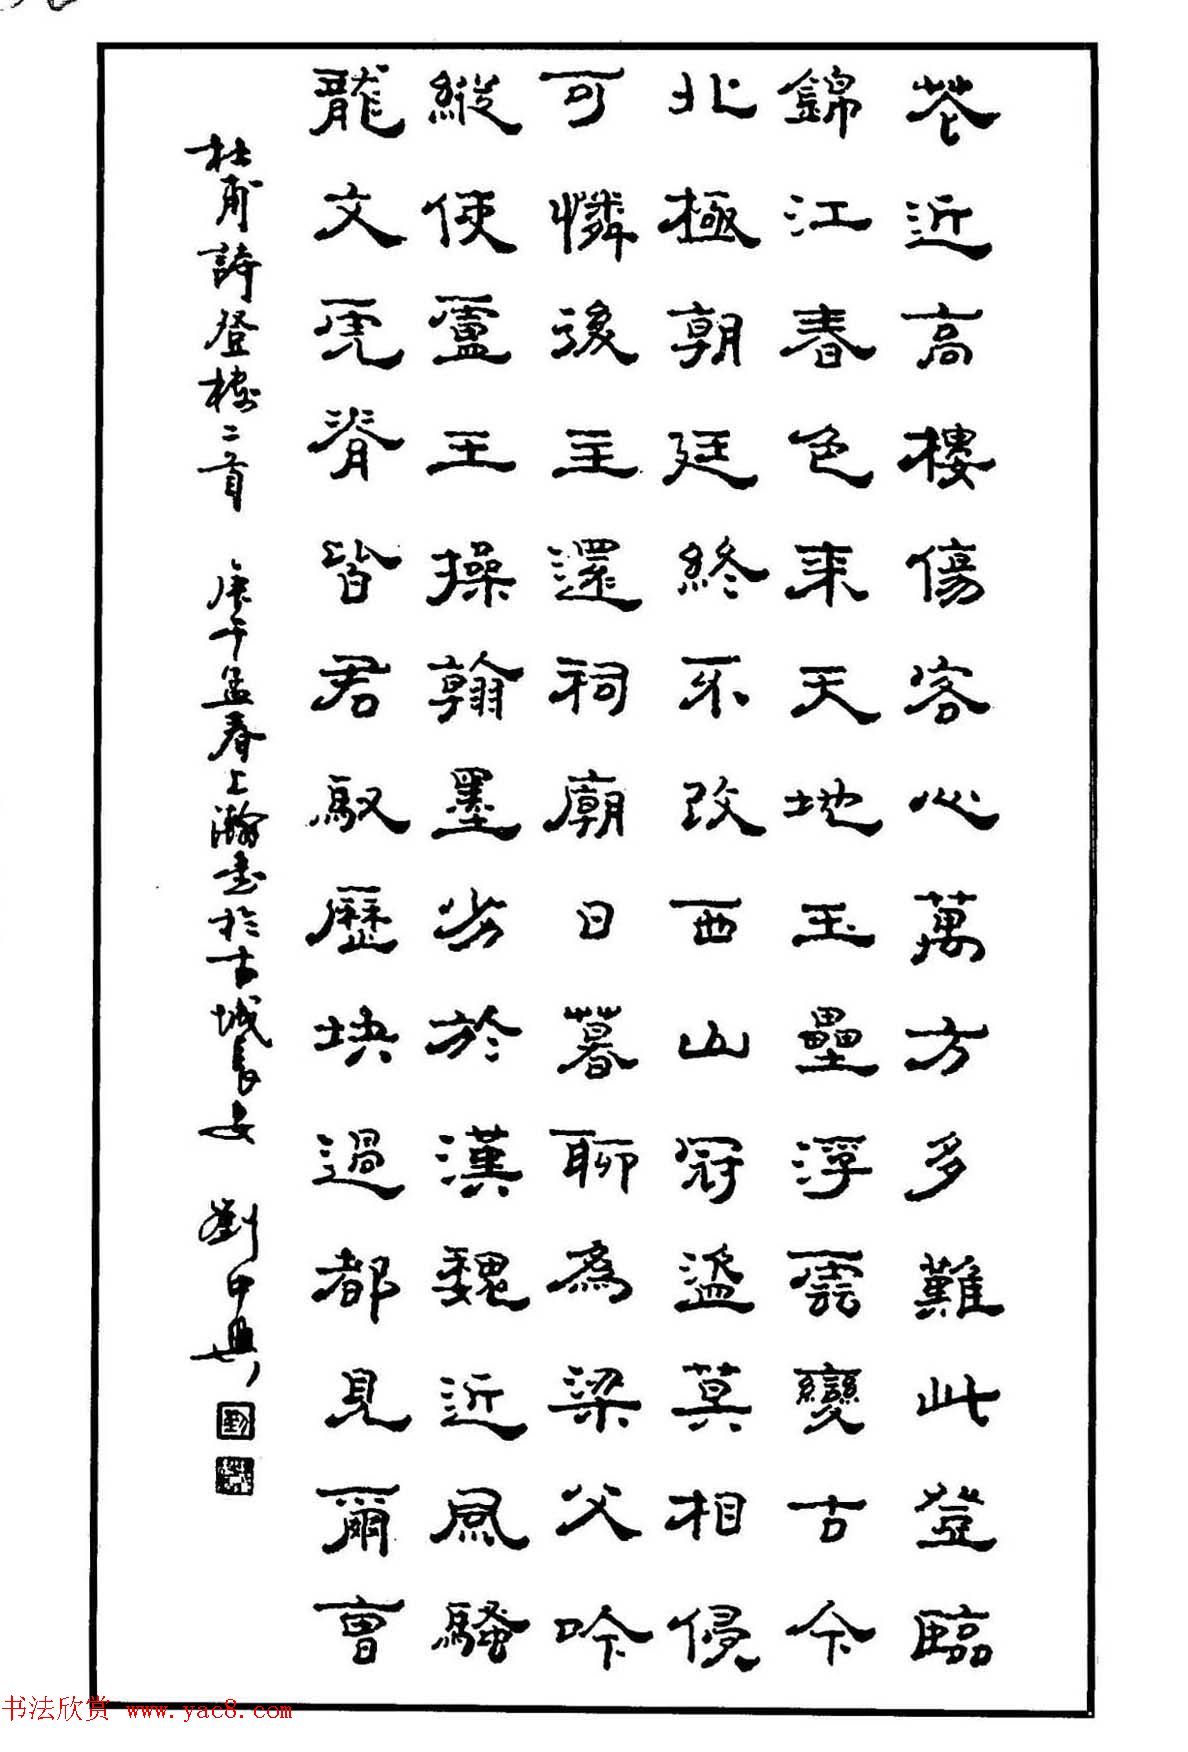 花近高樓傷客心萬方多難此登臨
錦江春色來天地玉壘浮雲變古今
北極朝廷終不改西山寇盜莫相侵
可憐後主還祠廟日暮聊為梁父吟
縱使盧王操翰墨劣於漢魏近風騷
龍文虎脊皆君馭歷塊過都見爾曹
杜甫詩登樓二首 庚午孟春上瀚書於古城長安 劉中興
书法欣赏 www.yac8.com